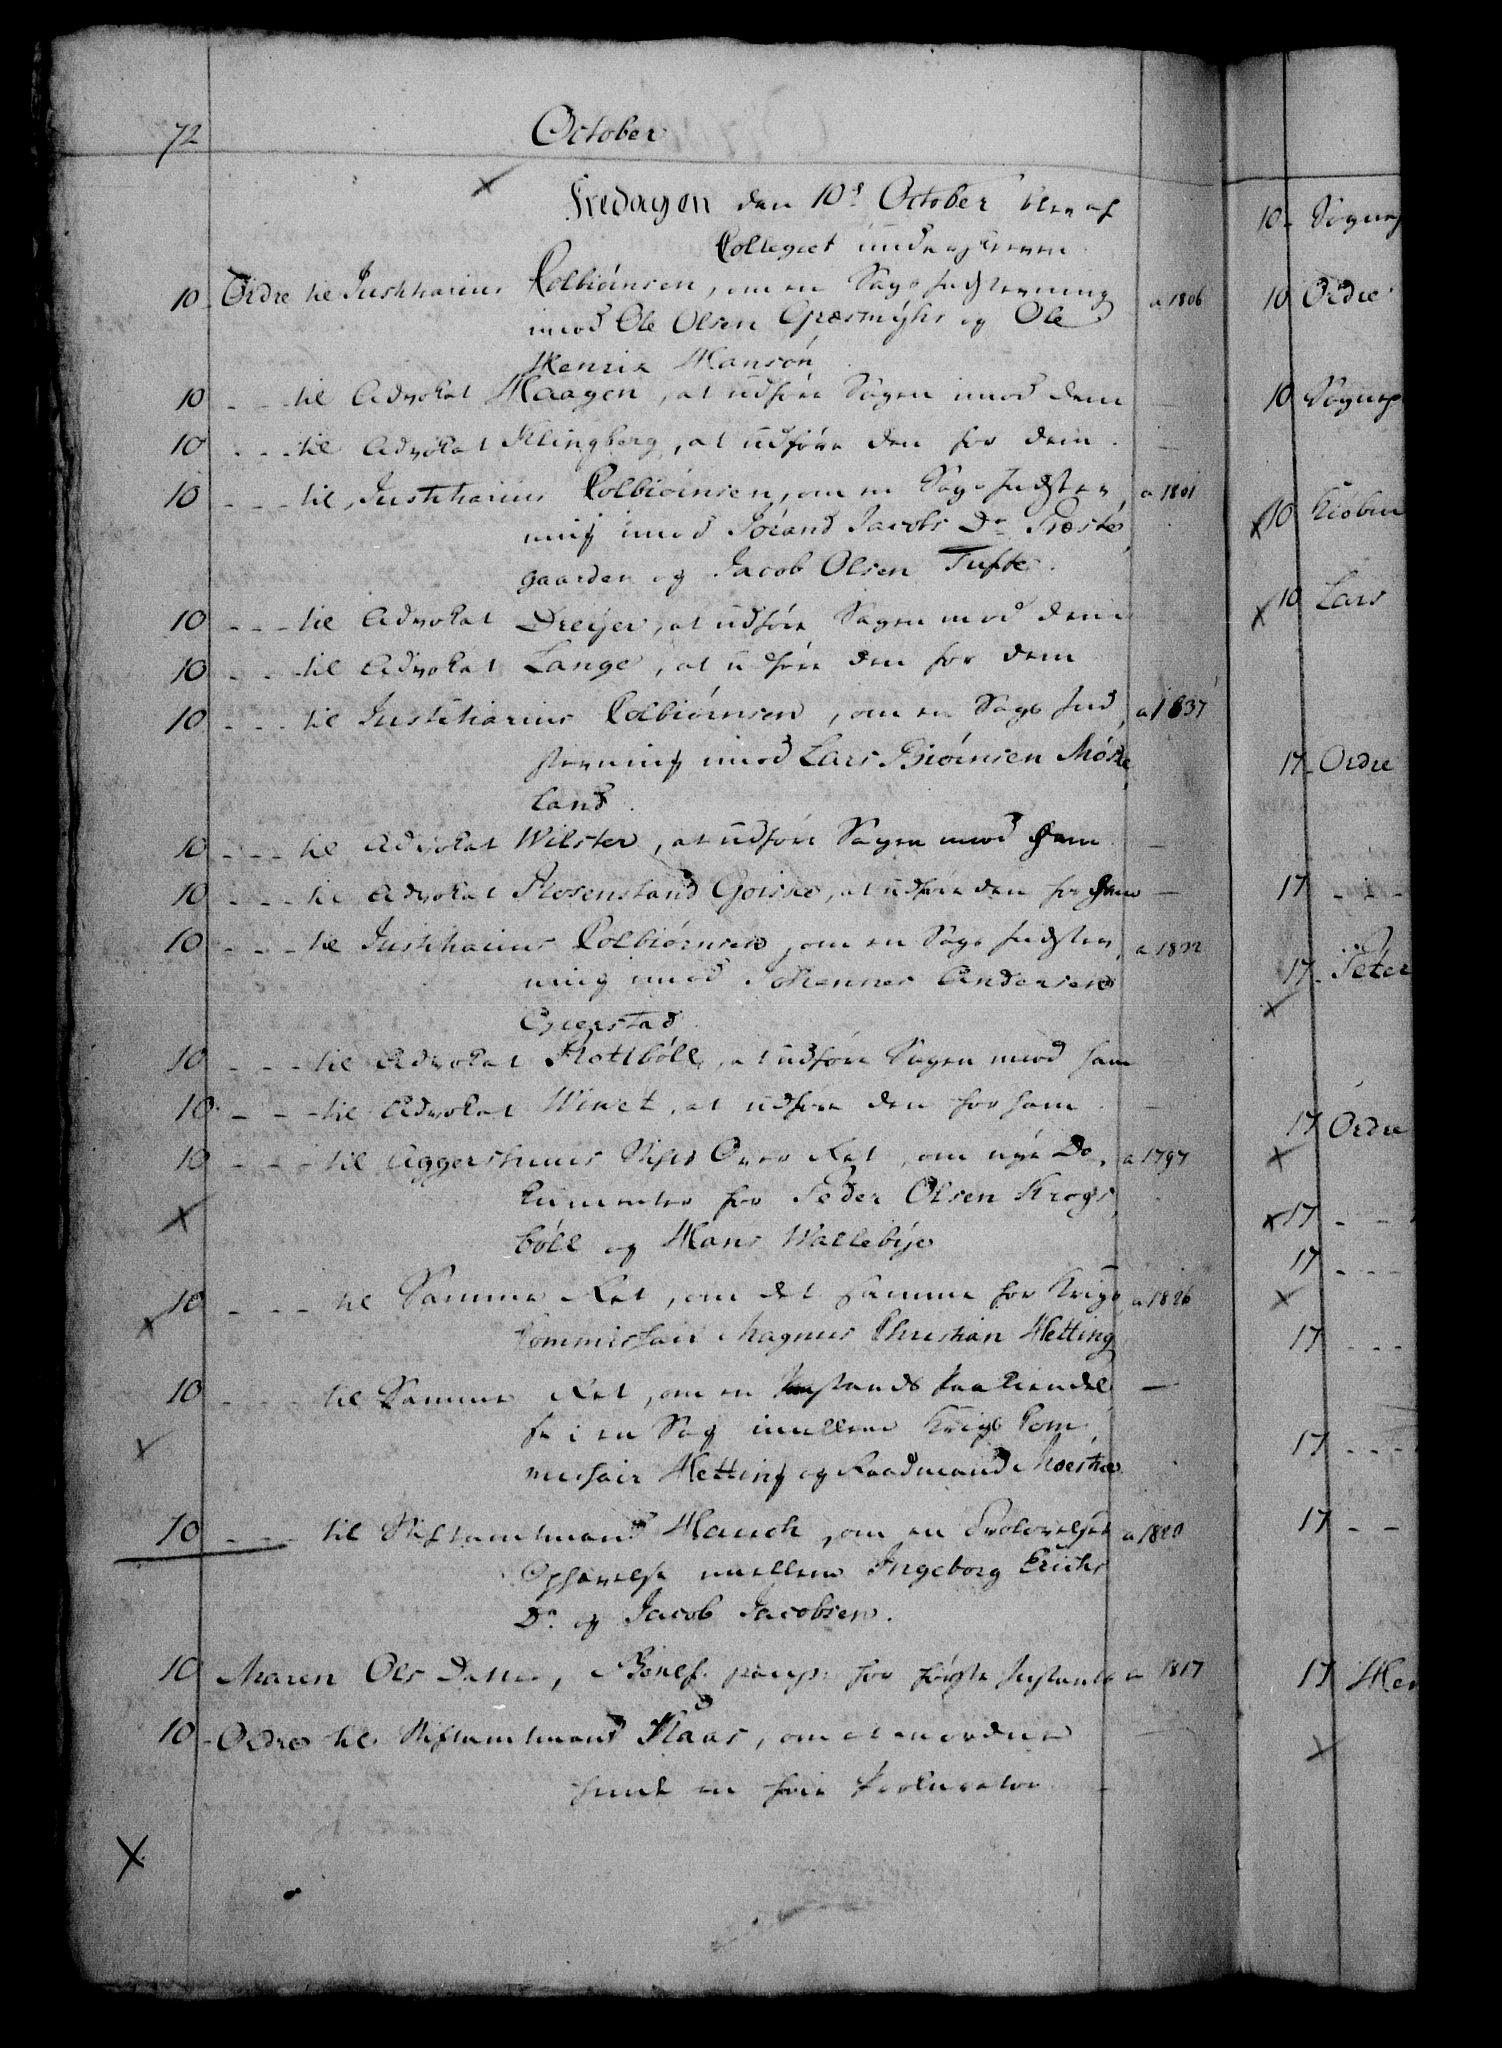 72
October
Fredagen den 10de October blev af
Collegiet underskreven
10 Ordre til Justitiarius Colbiörnsen, om en Sags Indstevning a 1806
imod Ole Olsen Græsmyhr og Ole
Henrik Hansön
10 - - - til Advokat Haagen, at udföre Sagen imod dem —
10 - - - til Advokat Klingberg, at udföre den for dem. —
10 - - - til Justitiarius Colbiörnsen, om en Sags Indstev, a 1801
ning imod Jörand Jacobs Dr Præste,
gaarden og Jacob Olsen Tufte.
10 - - - til Advokat Dreÿer, at udföre Sagen imod dem
10 - - - til Advokat Lange, at udföre den for dem
10 - - - til Justitiarius Colbiörnsen, om en Sags Ind, a 1837
stevning imod Lars Biörnsen Möske,
land.
10 - - - til Advokat Wilster, at udföre Sagen imod ham —
10 - - - til Advokat Rosenstand Goiske, at udföre den for ham —
10 - - - til Justitiarius Colbiörnsen, om en Sags Indstev, a 1822
ning imod Johannes Andersen
Egierstad
10 - - - til Advokat Rottböll, at udföre Sagen imod ham
10 - - - til Advokat Winet, at udföre den for ham. —
10 - - - til Aggershuus Stifts Over Ret, om nye Do, a 1797
cumenter for Peder Olsen Krogs,
böll og Hans Wallebÿe
10 - - - til Samme Ret, om det samme for Krigs a 1826
Commissair Magnus Christian Hetting
10 - - - til Samme Ret, om en Instants Paakiendel —
se i en Sag imellem Krigs Com,
missair Hetting og Raadmand Moestue
10 - - - til Stiftamtmand Hauch, om en Trolovelses a 1820
Ophævelse imellem Ingeborg Erichs
Dr. og Jacob Jacobsen.
10 Maren Ols Datter, Benef. paup. for förste Instants a 1817
10 - Ordre til Stiftamtmand Kaas, om at anordne
hende en frie Procurator. —
10 - Sognep
10 Ordre
10 Sognep
10 Kiöben
10 Lars
17 - Ordre
17 - - -
17 - Peter
17 Ordre
17 - - -
17 - - -
17 - - -
17 - - -
17 - -
17 Hen